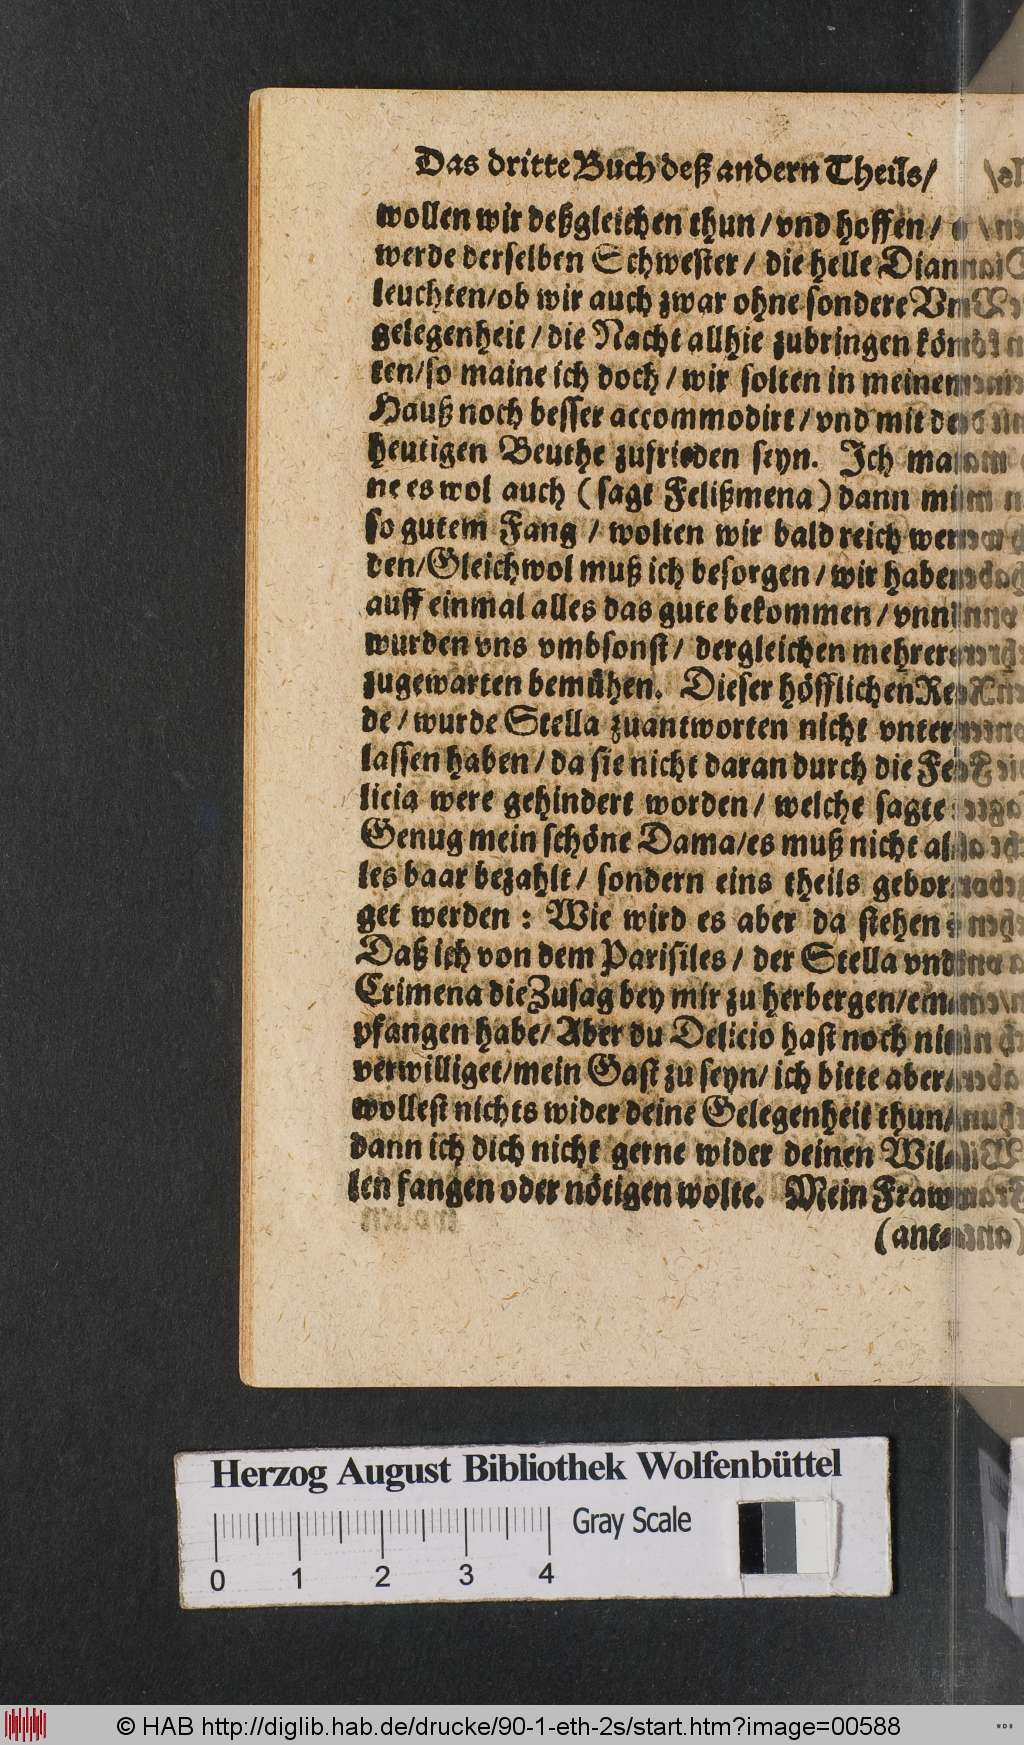 Das dritte Buch deß andern Theils/
wollen wir deßgleichen thun / vnd hoffen /
werde derselben Schwester / die helle Diann
leuchten/ob wir auch zwar ohne sondere Vn
gelegenheit / die Nacht allhie zubringen kön
ten/so maine ich doch / wir solten in meinem
Hauß noch besser accommodirt / vnd mit der
heutigen Beuthe zufrieden seyn. Ich mai
ne es wol auch ( sagt Felißmena ) dann mit
so gutem Fang / wolten wir bald reich wer
den/Gleichwol muß ich besorgen / wir haben
auff einmal alles das gute bekommen / vnnd
wurden vns vmbsonst / dergleichen mehrer
zugewarten bemühen. Dieser höfflichen Re
de / wurde Stella zuantworten nicht vnter
lassen haben / da sie nicht daran durch die Fe
licia were gehindert worden / welche sagte:
Genug mein schöne Dama/es muß nicht al
les baar bezahlt / sondern eins theils gebor
get werden : Wie wird es aber da stehen
Daß ich von dem Parisiles / der Stella vnd
Crimena die Zusag bey mir zu herbergen/em
pfangen habe/ Aber du Delicio hast noch nit
verwilliget/mein Gast zu seyn/ ich bitte aber/
wollest nichts wider deine Gelegenheit thun/
dann ich dich nicht gerne wider deinen Wil
len fangen oder nötigen wolte. Mein Fraw
(ant
Herzog August Bibliothek Wolfenbüttel
Gray Scale
0 1 2 3 4
© HAB http://diglib.hab.de/drucke/90-1-eth-2s/start.htm?image=00588